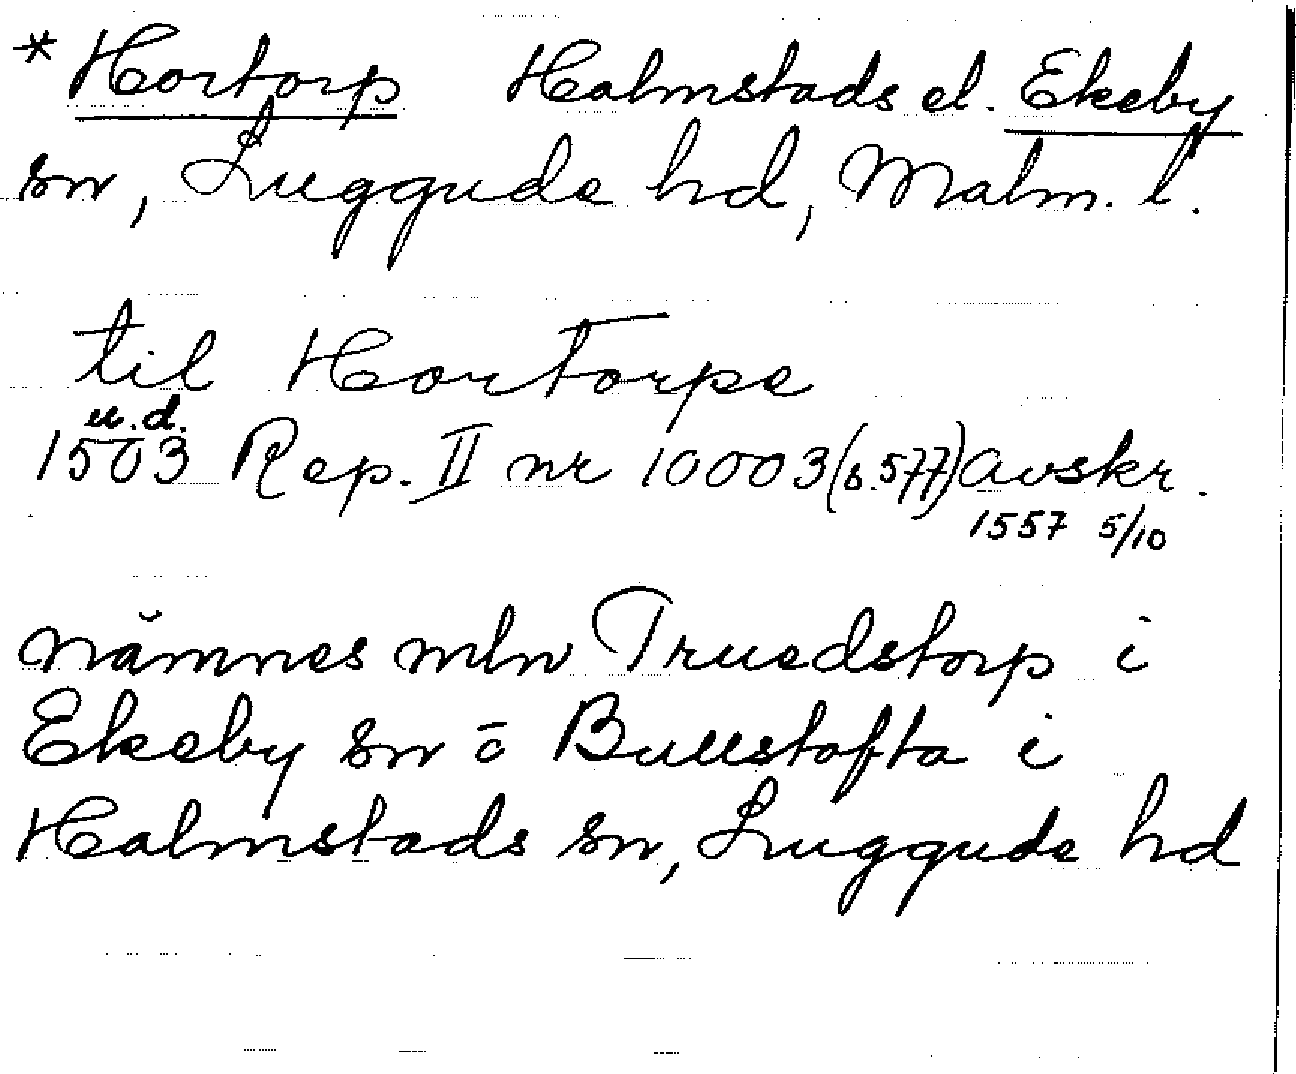 * Hortorp Halmstads el. Ekeby
sn, Luggude hd, Malm. l.
til Hortorpe
u.d.
1503 Rep. II nr 10003 (s. 577) avskr.
1557 5/10
nämnes mln Truedstorp i
Ekeby sn o Bullstofta i
Halmstads sn, Luggude hd